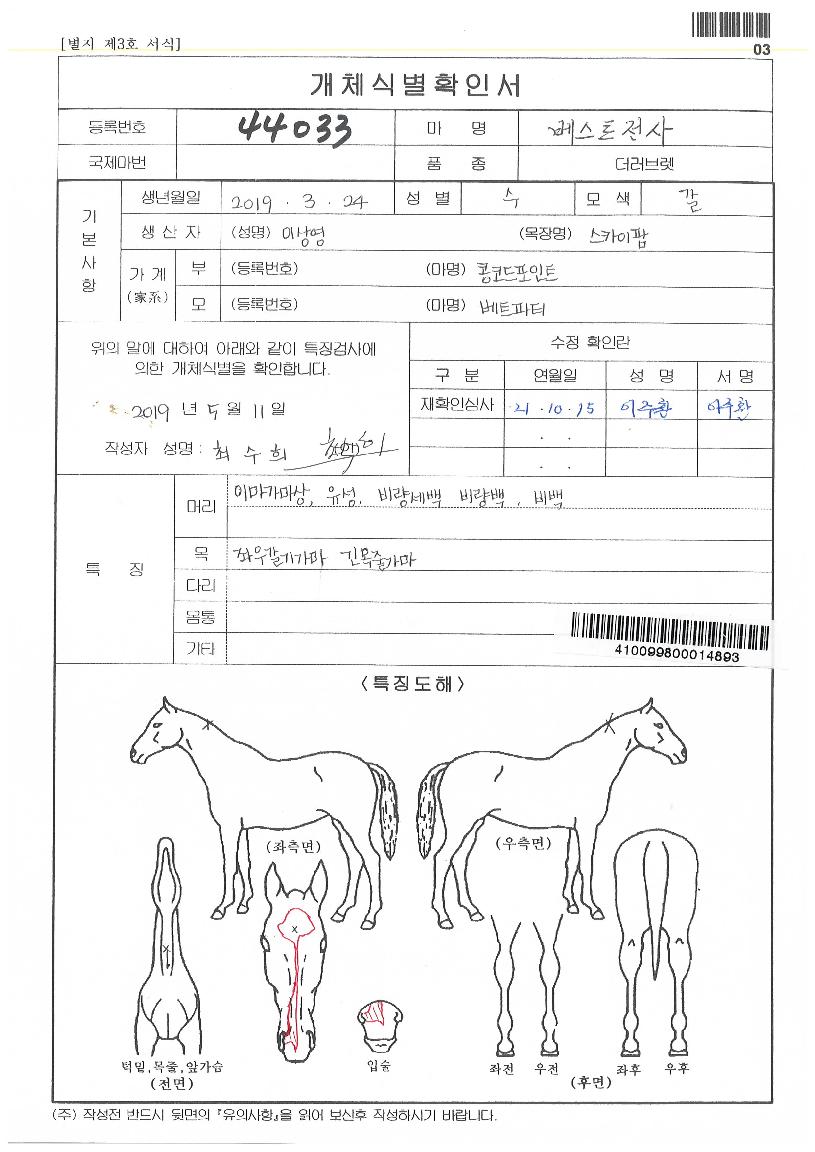 [별지 제3호 서식]
03
개체식별확인서
등록번호 44033 마 명 베스트전사
국제마번 품 종 더러브렛
기본사항
생년월일 2019 . 3 . 24 성 별 수 모 색 갈
생 산 자 (성명) 이상영 (목장명) 스카이팜
가 계 (家系)
부 (등록번호) (마명) 콩코드포인트
모 (등록번호) (마명) 베트파티
위의 말에 대하여 아래와 같이 특징검사에
의한 개체식별을 확인합니다.
2019 년 5 월 11 일
작성자 성명 : 최수희
수정 확인란
구 분 연월일 성 명 서 명
재확인심사 21 . 10 . 15 이주환 이주환
. .
. .
특 징
머리 이마가마상, 유성, 비량세백 비량백 , 비백
목 좌우갈기가마 긴목줄가마
다리
몸통
기타
410099800014893
〈특징도해〉
(좌측면) (우측면)
턱밑,목줄,앞가슴
(전면)
입술
좌전 우전 좌후 우후
(후면)
(주) 작성전 반드시 뒷면의 『유의사항』을 읽어 보신후 작성하시기 바랍니다.